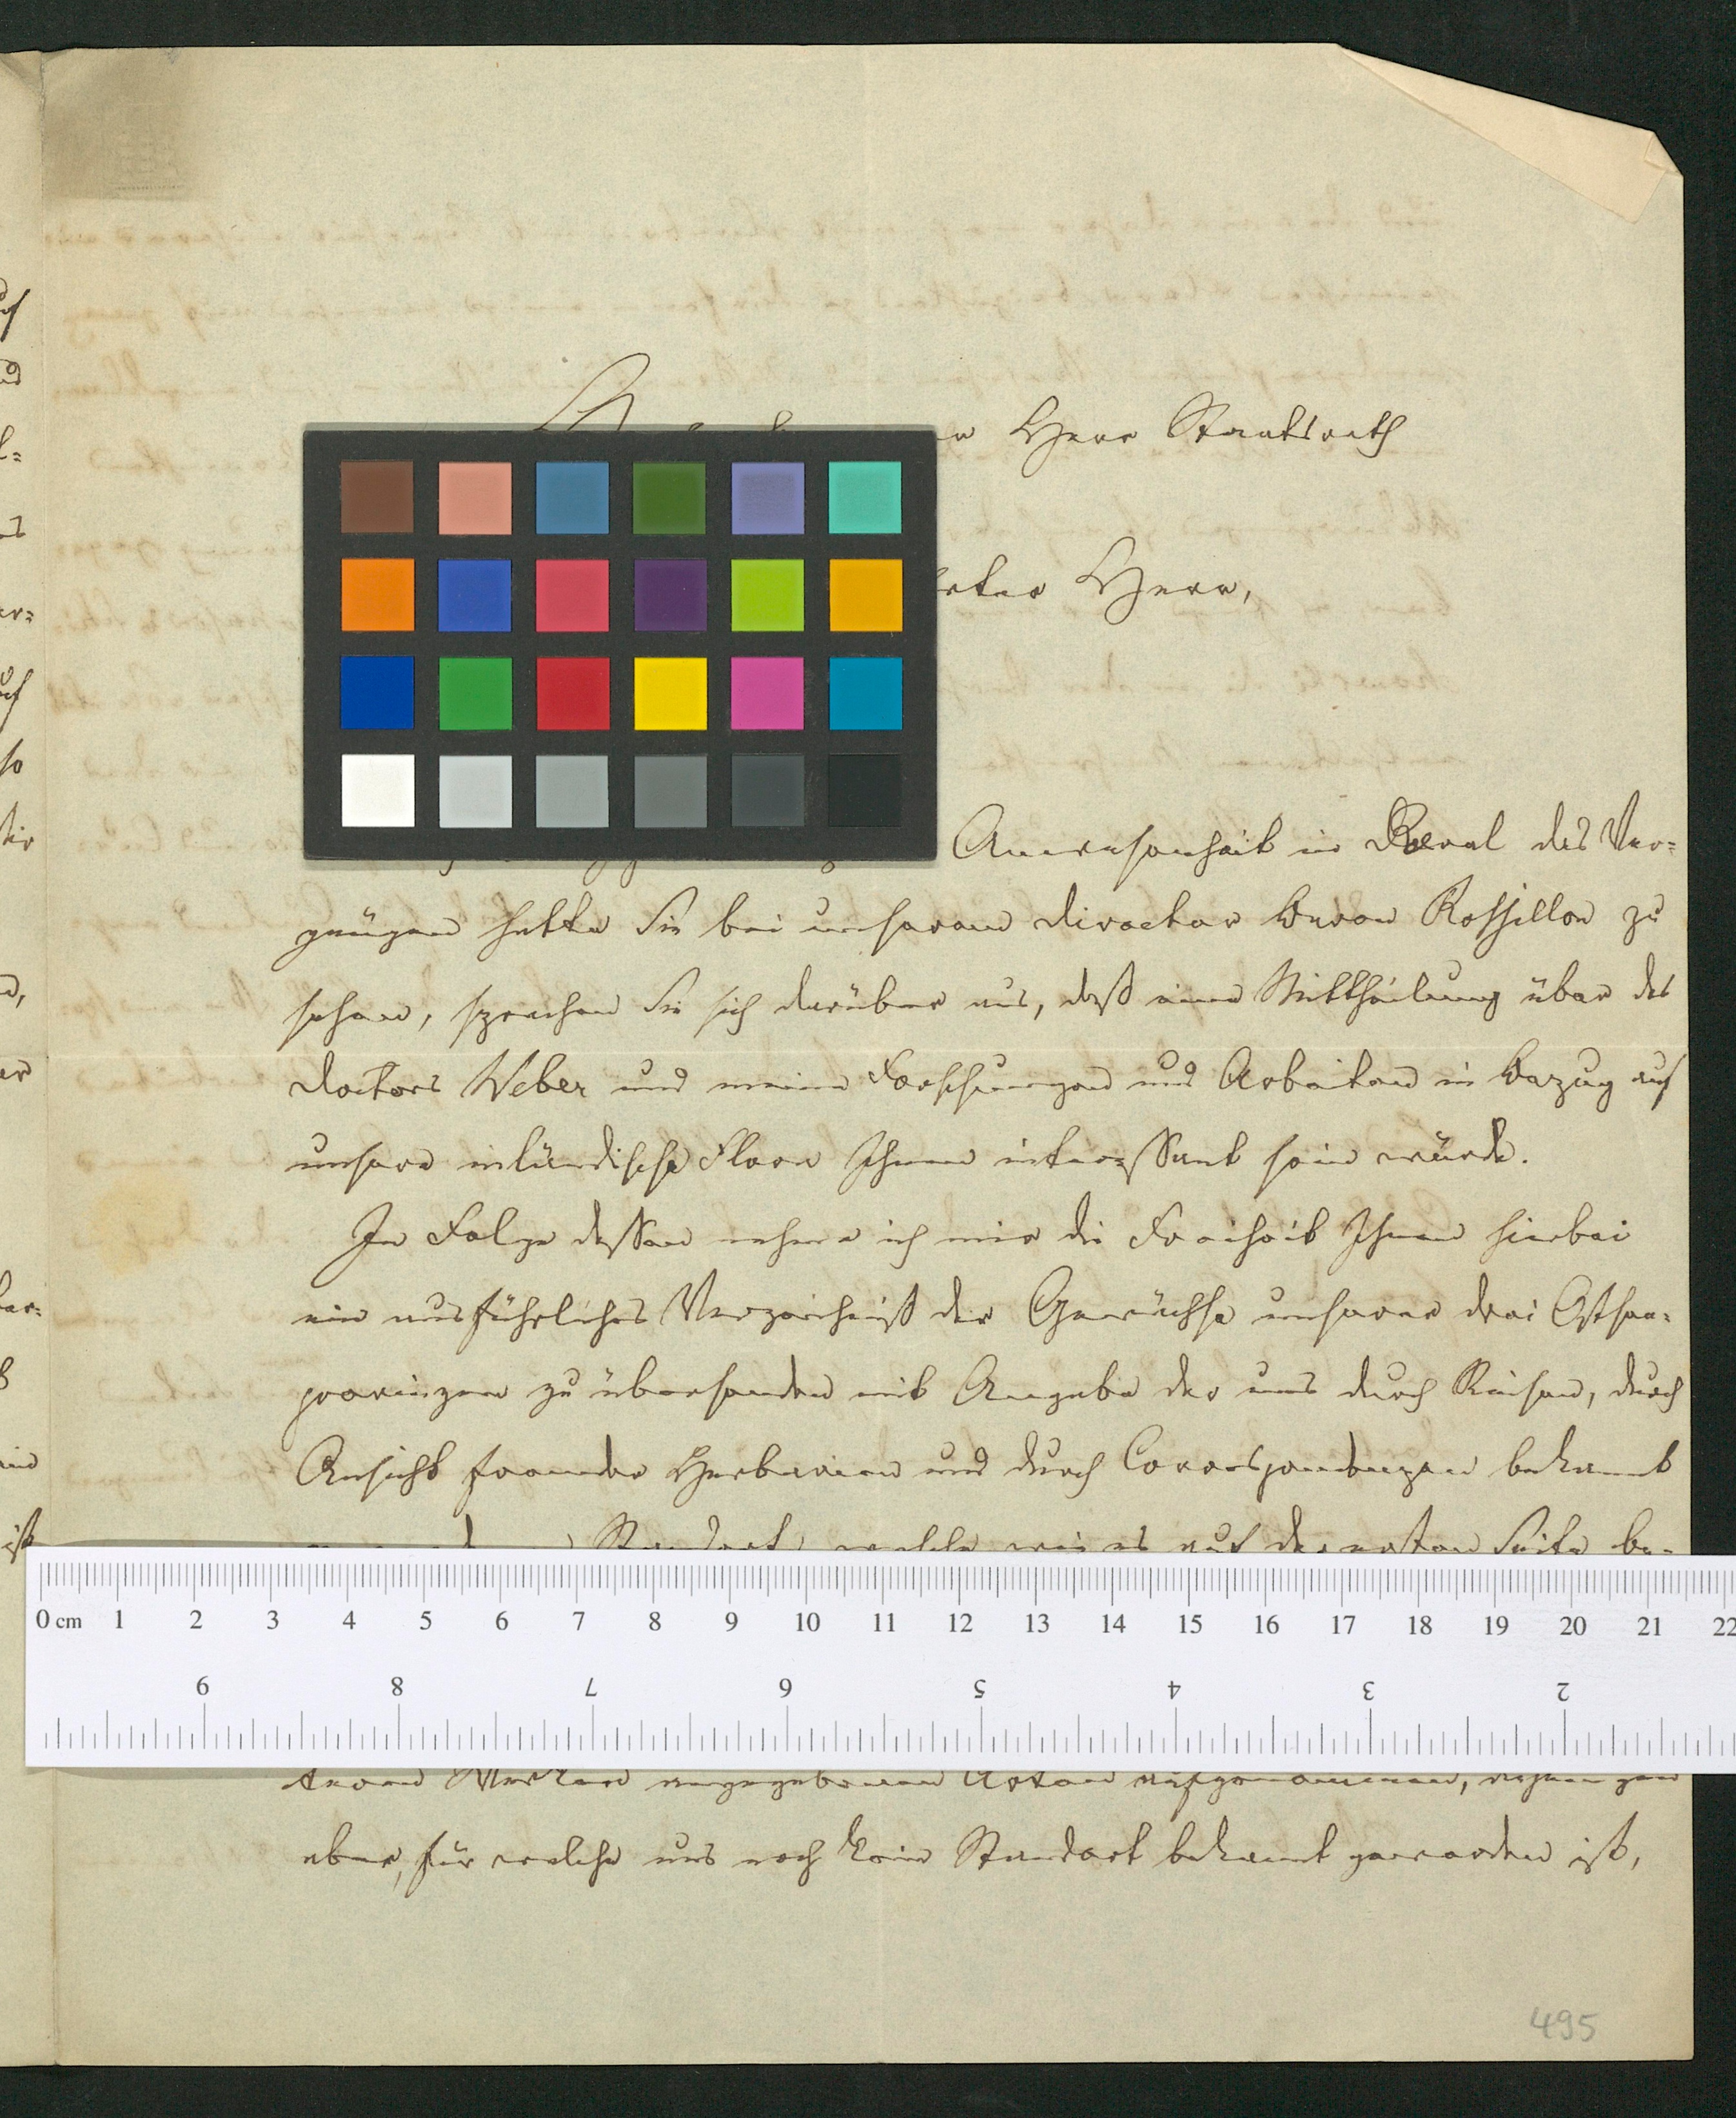 Herr Staatsrath
Herr,
Anwesenheit in Reval das Ver-
gnügen hatte Sie bei unserem Director Baron Rossillon zu
sehen, sprachen Sie sich darüber aus, daß eine Mittheilung über des
Doctors Weber und meine Forschungen und Arbeiten in Bezug auf
unsere inländische Flora Ihnen interessant sein würde.
In Folge dessen nehme ich mir die Freiheit Ihnen hierbei
ein ausführliches Verzeichniß der Gewächse unserer drei Ostsee-
provinzen zu übersenden mit Angabe der uns durch Reisen, durch
Ansicht fremder Herbarien und durch Correspondenzen bekannt
welche wie es auf der ersten Seite be-
0 cm 1 2 3 4 5 6 7 8 9 10 11 12 13 14 15 16 17 18 19 20 21 22
9 8 7 6 5 4 3 2
angegebenen Arten aufgenommen,
aber, für welche uns noch kein Standort bekannt geworden ist,
495